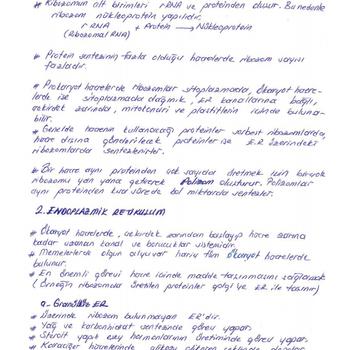 * Ribozomun alt birimleri rRNA ve proteinden oluşur. Bu nedenle
ribozom nükleoprotein yapılıdır.
rRNA + Protein → Nükleoprotein
(Ribozomal RNA)
* Protein sentezinin fazla olduğu hücrelerde ribozom sayısı
fazladır.
* Prokaryot hücrelerde ribozomlar sitoplazmada, Ökaryot hücre-
lerde ise sitoplazmada dağınık, ER kanallarına bağlı,
çekirdek zarında, mitokondri ve plastitlerin içinde buluna-
bilir.
* Genelde hücrenin kullanacağı proteinler serbest ribozomlarda,
hücre dışına gönderilecek proteinler ise E.R üzerindeki
ribozomlarda sentezlenirler.
* Bir hücre aynı proteinden çok sayıda üretmek için birçok
ribozomu yan yana getirerek Polizom oluşturur. Polizomlar
aynı proteinden kısa sürede bol miktarda sentezler.
2. ENDOPLAZMİK RETİKULUM
* Ökaryot hücrelerde, çekirdek zarından başlayıp hücre zarına
kadar uzanan kanal ve borucuklar sistemidir.
* Memelilerde olgun alyuvar hariç tüm Ökaryot hücrelerde
bulunur.
* En önemli görevi hücre içinde madde taşınmasını sağlamak
(Örneğin ribozomda üretilen proteinler golgi ye ER ile taşınır)
a- Granülsüz ER
* Üzerinde ribozom bulunmayan ER'dir.
* Yağ ve karbonhidrat sentezinde görev yapar.
* Steroit yapılı eşey hormonlarının üretiminde görev yapar.
* Karaciğer hücrelerinde